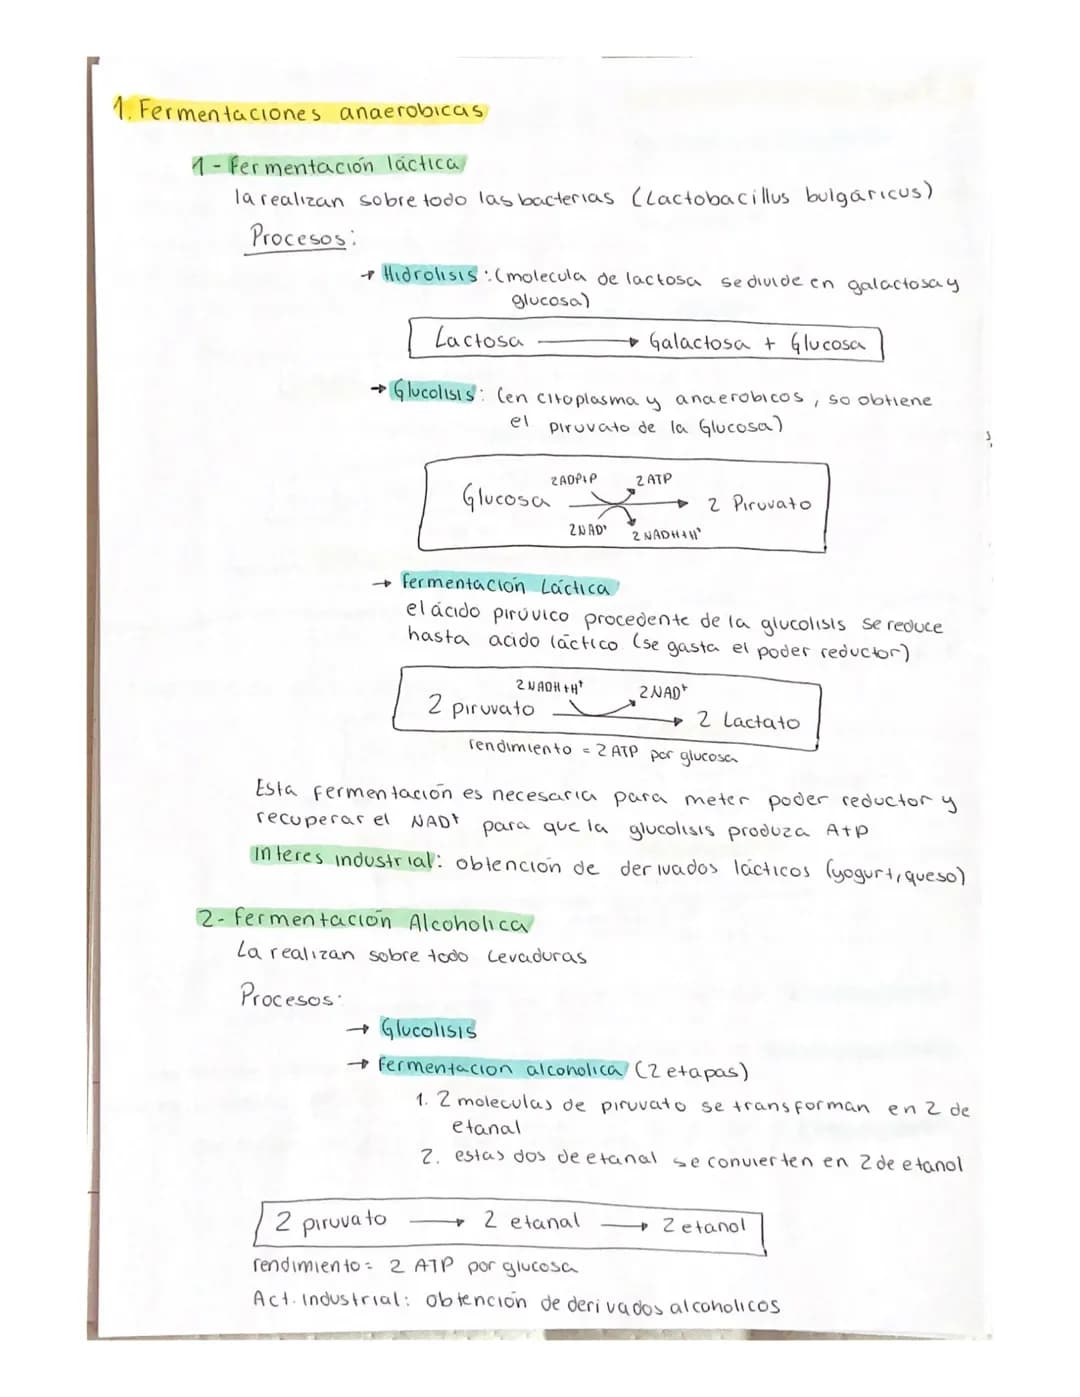 1. Fermentaciones anaerobicas
1- Fermentación láctica
la realizan sobre todo las bacterias (Lactobacillus bulgáricus)
Procesos:
→ Hidrolisis: (molecula de lactosa se divide en galactosa y
glucosa)
Lactosa → Galactosa + Glucosa
→ Glucolisis: (en citoplasma y anaerobicos, so obtiene
el piruvato de la Glucosa)
2ADP+P 2 ATP
Glucosa → 2 Piruvato
2NAD+ 2 NADH+H+
→ Fermentación Láctica
el ácido pirúvico procedente de la glucolisis se reduce
hasta acido láctico (se gasta el poder reductor)
2 NADH+H+ 2 NAD+
2 piruvato → 2 Lactato
rendimiento = 2 ATP por glucosa
Esta fermentación es necesaria para meter poder reductor y
recuperar el NAD+ para que la glucolisis produza Atp
Interes industrial: obtención de derivados lácticos (yogurt, queso)
2- Fermentación Alcoholica
La realizan sobre todo Levaduras
Procesos:
→ Glucolisis
→ Fermentacion alcoholica (2 etapas)
1. 2 moleculas de piruvato se transforman en 2 de
etanal
2. estas dos de etanal se convierten en 2 de etanol
2 piruvato → 2 etanal → 2 etanol
rendimiento = 2 ATP por glucosa
Act. Industrial: Obtención de derivados alcoholicos